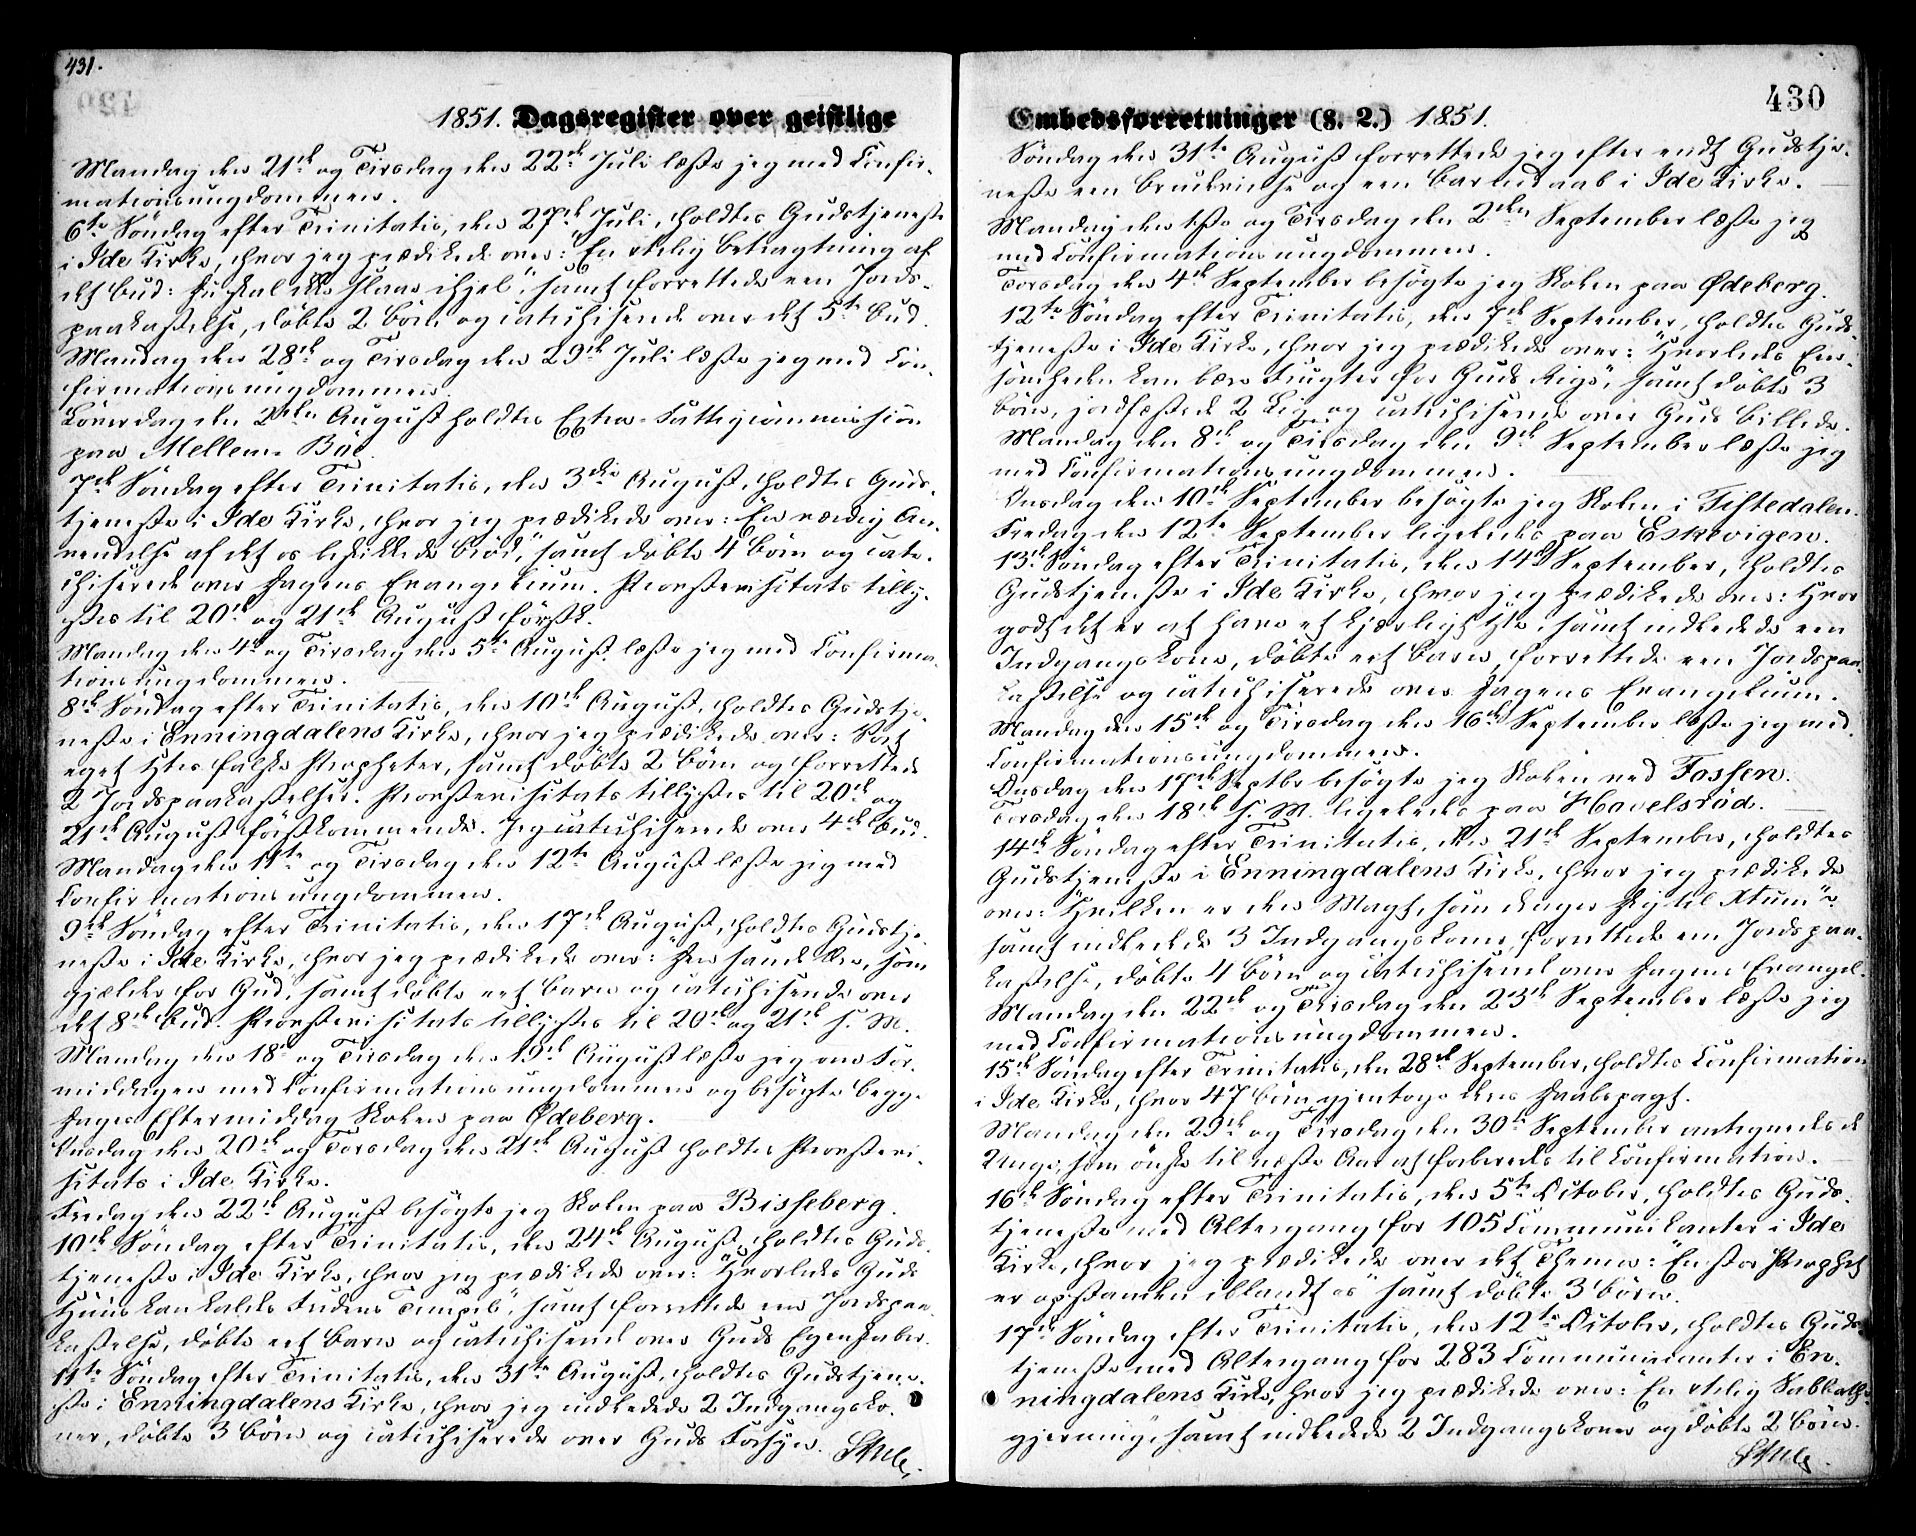 431.
1851. Dagsregister over geistlige
Mandag den 21de og Tirsdag den 22de Juli læste jeg med Confir-
mationsungdommen.
6te Søndag efter Trinitatis, den 27de Juli, holdtes Gudstjeneste
i Ide Kirke, hvor jeg prædikede over: En retlig Betragtning af
det Bud: Du skal ikke slaae ihjel", samt forrettede een Jords-
paakastelse, døbte 2 Børn og catechiserede over det 5te Bud.
Mandag den 28de og Tirsdag den 29de Juli læste jeg med Con-
firmationsungdommen.
Løverdag den 2den August holdtes Extra-Fattigcommission
paa Mellem-Bøe.
7de Søndag efter Trinitatis, den 3die August, holdtes Guds-
tjeneste i Ide Kirke, hvor jeg prædikede over: En værdig An-
vendelse af det os beskikkede Brød", samt døbte 4 Børn og cate-
chiserede over Dagens Evangelium. Provstevisitats tilly-
stes til 20de og 21de August førstk.
Mandag den 4de og Tirsdag den 5te August læste jeg med Confirma-
tionsungdommen.
8de Søndag efter Trinitatis, den 10de August, holdtes Gudstje-
neste i Enningdalens Kirke, hvor jeg prædikede over: Vort
eget Hjertes falske Propheter, samt døbte 2 Børn og forrettede
2 Jordspaakastelser. Provstevisitats tillystes til 20de og
21de August førstkommende. Jeg catechiserede over 4de Bud.
Mandag den 11te og Tirsdag den 12te August læste jeg med
Confirmationsungdommen.
9de Søndag efter Trinitatis, den 17de August, holdtes Gudstje-
neste i Ide Kirke, hvor jeg prædikede over: Den sande Ære, som
gjælder for Gud, samt døbte eet Barn og catechiserede over
det 8de Bud. Provstevisitats tillystes til 20de og 21de s. M.
Mandag den 18de og Tirsdag den 19de August læste jeg om For-
middagen med Confirmationsungdommen og besøgte begge
Dages Eftermiddag Skolen paa Ødeberg.
Onsdag den 20de og Torsdag den 21de August holdtes Provstevi-
sitats i Ide Kirke.
Fredag den 22de August besøgte jeg Skolen paa Bisseberg.
10de Søndag efter Trinitatis, den 24de August, holdtes Guds-
tjeneste i Ide Kirke, hvor jeg prædikede over: "Hvorledes Guds
Huus kan kaldes Fredens Tempel", samt forrettede een Jordspaa-
kastelse, døbte eet Barn og catechiserede over Guds Egenskaber.
11te Søndag efter Trinitatis, den 31te August, holdtes Gudstjene-
ste i Enningdalens Kirke, hvor jeg indledede 2 Indgangsko-
ner, døbte 3 Børn og catechiserede over Guds Forsyn.
430
Embedsforretninger (§. 2.) 1851.
Søndag den 31te August forrettede jeg efter endt Gudstje-
neste een Brudevielse og een Barnedaab i Ide Kirke.
Mandag den 1ste og Tirsdag den 2den September læste jeg
med Confirmationsungdommen.
Torsdag den 4de September besøgte jeg Skolen paa Ødeberg.
12te Søndag efter Trinitatis, den 7de September, holdtes Guds-
tjeneste i Ide Kirke, hvor jeg prædikede over: "Hvorledes Een-
somheden kan bære Frugter for Guds Rige", samt døbte 3
Børn, jordfæstede 2 Lig og catechiserede over Guds Billede.
Mandag den 8de og Tirsdag den 9de September læste jeg
med Confirmationsungdommen.
Onsdag den 10de September besøgte jeg Skolen i Tistedalen.
Fredag den 12te September ligeledes paa Eskevigen.
13de Søndag efter Trinitatis, den 14de September, holdtes
Gudstjeneste i Ide Kirke, hvor jeg prædikede over: Hvor
godt det er at have et kjærligt Hjerte, samt indledede een
Indgangskone, døbte eet Barn, forrettede een Jordspaa-
kastelse og catechiserede over Dagens Evangelium.
Mandag den 15de og Tirsdag den 16de September læste jeg med
Confirmationsungdommen.
Onsdag den 17de Septbr besøgte jeg Skolen ved Fossen.
Torsdag den 18de s. M. ligeledes paa Havelsröd.
14de Søndag efter Trinitatis, den 21de September, holdtes
Gudstjeneste i Enningdalens Kirke, hvor jeg prædikede
over: Hvilken er den Magt, som drager Dig til Xtum"?
samt indledede 3 Indgangskoner, forrettede een Jordspaa-
kastelse, døbte 4 Børn og catechiserede over Dagens Evangel.
Mandag den 22de og Tirsdag den 23de September læste jeg
med Confirmationsungdommen.
15de Søndag efter Trinitatis, den 28de September, holdtes Confirmation
i Ide Kirke, hvor 47 Børn gjentoge deres Daabspagt.
Mandag den 29de og Tirsdag den 30te September antegnedes de
Unge, som ønske til næste Aar at forberedes til Confirmation.
16de Søndag efter Trinitatis, den 5te October, holdtes Guds-
tjeneste med Altergang for 105 Communicanter i Ide
Kirke, hvor jeg prædikede over det Thema: "En stor Prophet
er opstanden iblandt os" samt døbte 3 Børn.
17de Søndag efter Trinitatis, den 12te October, holdtes Guds-
tjeneste med Altergang for 283 Communicanter i En-
ningdalens Kirke, hvor jeg prædikede over: "En retlig Sabbaths-
gjerning", samt indledede 2 Indgangskoner og døbte 2 Børn.